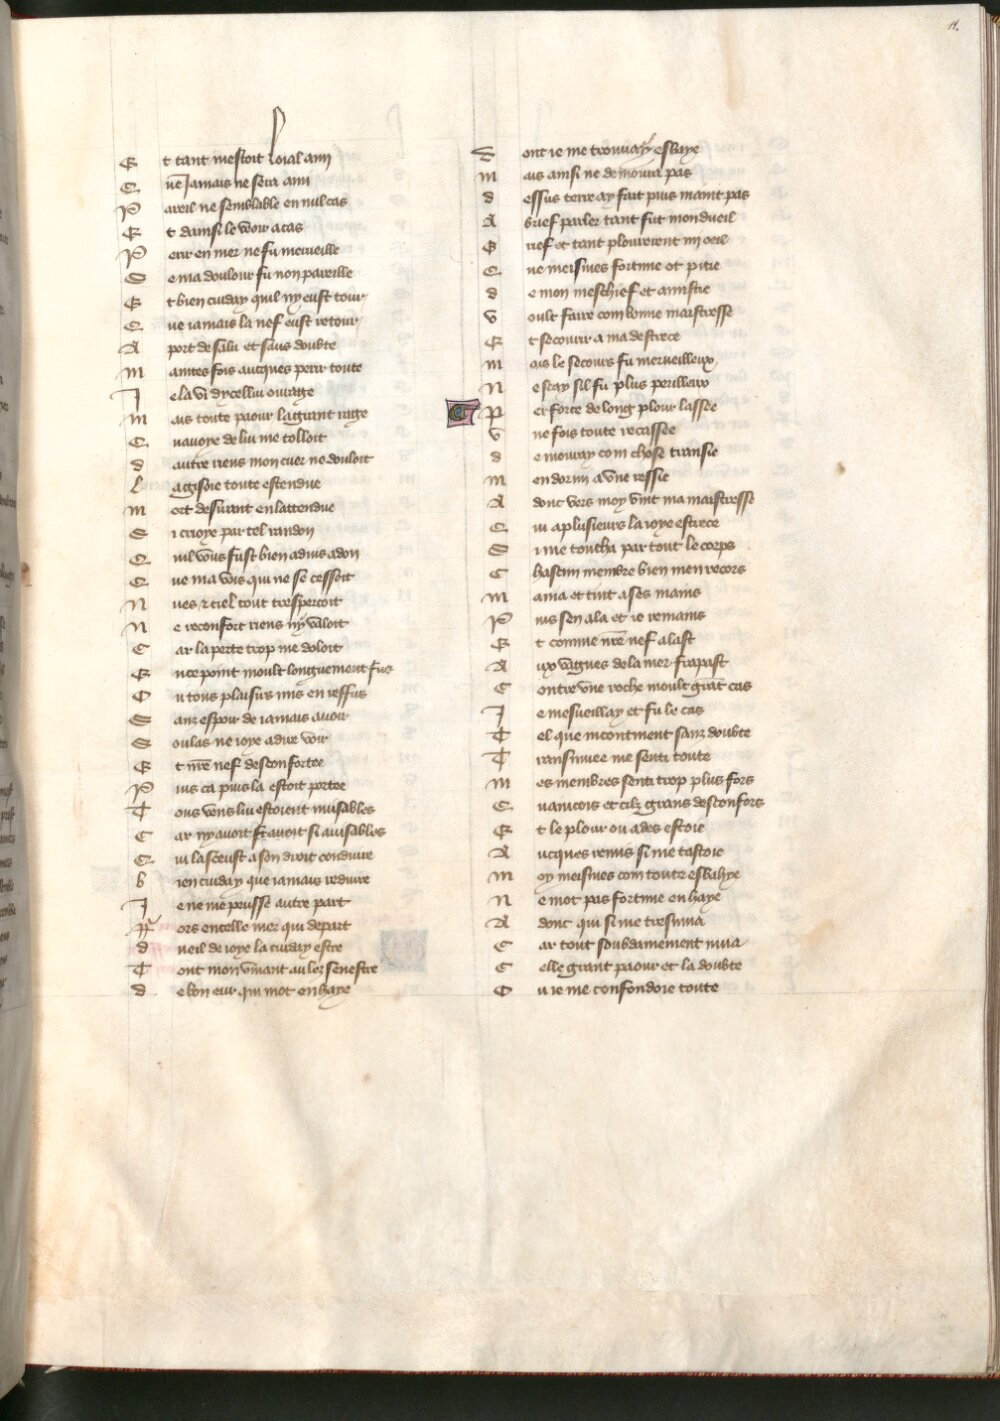 11.
Et tant mestoit loial ami
Que Jamais ne sera ami
Pareil ne semblable en nul cas
Et dainsi le veoir a cas
Perir en mer ne fu merueille
Se ma doulour fu non pareille
Et bien cuiday quil ny eust tour
Que iamais la nef eust retour
A port de salu et sans doubte
maintes fois aucques perir toute
Je la vi dycellui ourage
mais toute paour la grant rage
Quauoye de lui me tolloit
dautre riens mon cuer ne douloit
la gisoie toute estendue
mort desirant en lattendue
Si crioye par tel randon
Quil vous fust bien aduis adon
Que ma vois qui ne se cessoit
Nues et ciel tout tresperçoit
Ne reconfort riens ny valoit
Car la perte trop me doloit
En ce point moult longuement fus
Ou tous plaisirs mis en reffus
Sanz espoir de iamais auoir
Soulas ne ioye a dire voir
Et nre nef desconfortee
Puis ca puis la estoit portee
Tous vens lui estoient nuisables
Car ny auoit

 si auisables
Qui la sceust a son droit conduire
bien cuiday que iamais reduire
Je ne me peusse autre part
Fors en celle mer qui depart
dueil de ioye la cuiday estre
Tout mon viuant au lez senestre
de bon eur qui mot en haye
Dont ie me trouuay esbaye
mais ainsi ne demoura pas
dessus terre ay fait puis maint pas
A brief parler tant fut mon dueil
Grief et tant plourerent mi oeil
Que meismes fortune ot pitie
de mon meschief et amistie
voult faire com bonne maistresse
Et secourir a ma destrece
mais le secours fu merueilleux
Ne scay sil fu plus perilleux
Par force de long plour lassee
vne fois toute recassee
demouray com chose transie
mendormi a vne ressie
Adonc vers moy vint ma maistresse
Qui a plusieurs la ioye estrece
Si me toucha par tout le corps
Chascun membre bien men recors
mania et tint a ses mains
Puis sen ala et ie remains
Et comme nre nef alast
Aux vagues de la mer frapast
Contre vne roche moult grat cas
Je mesueillay et fu le cas
Tel que incontinent sanz doubte
Transmuee me senti toute
mes membres senti trop plus fors
Quaincois et cilz grans desconfors
Et le plour ou ades estoie
Aucques remis si me tastoie
moy meismes com toute esbahye
ne mot pas fortune en haye
Adonc qui si me tresmua
Car tout soubdainement mua
Celle grant paour et la doubte
Ou ie me confondoie toute